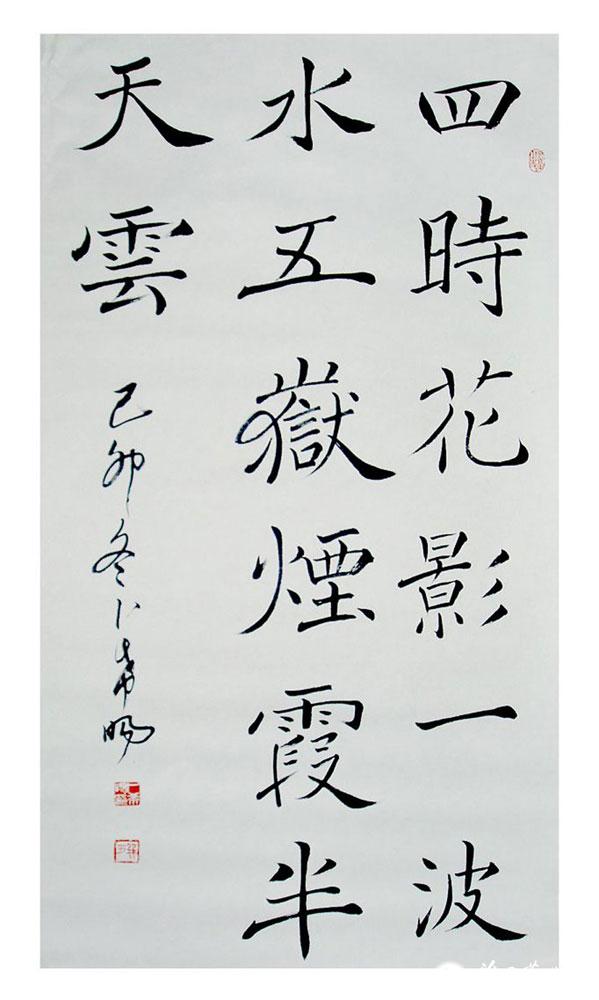 四時花影一波
水五嶽煙霞半
天雲
己卯冬卜希暘